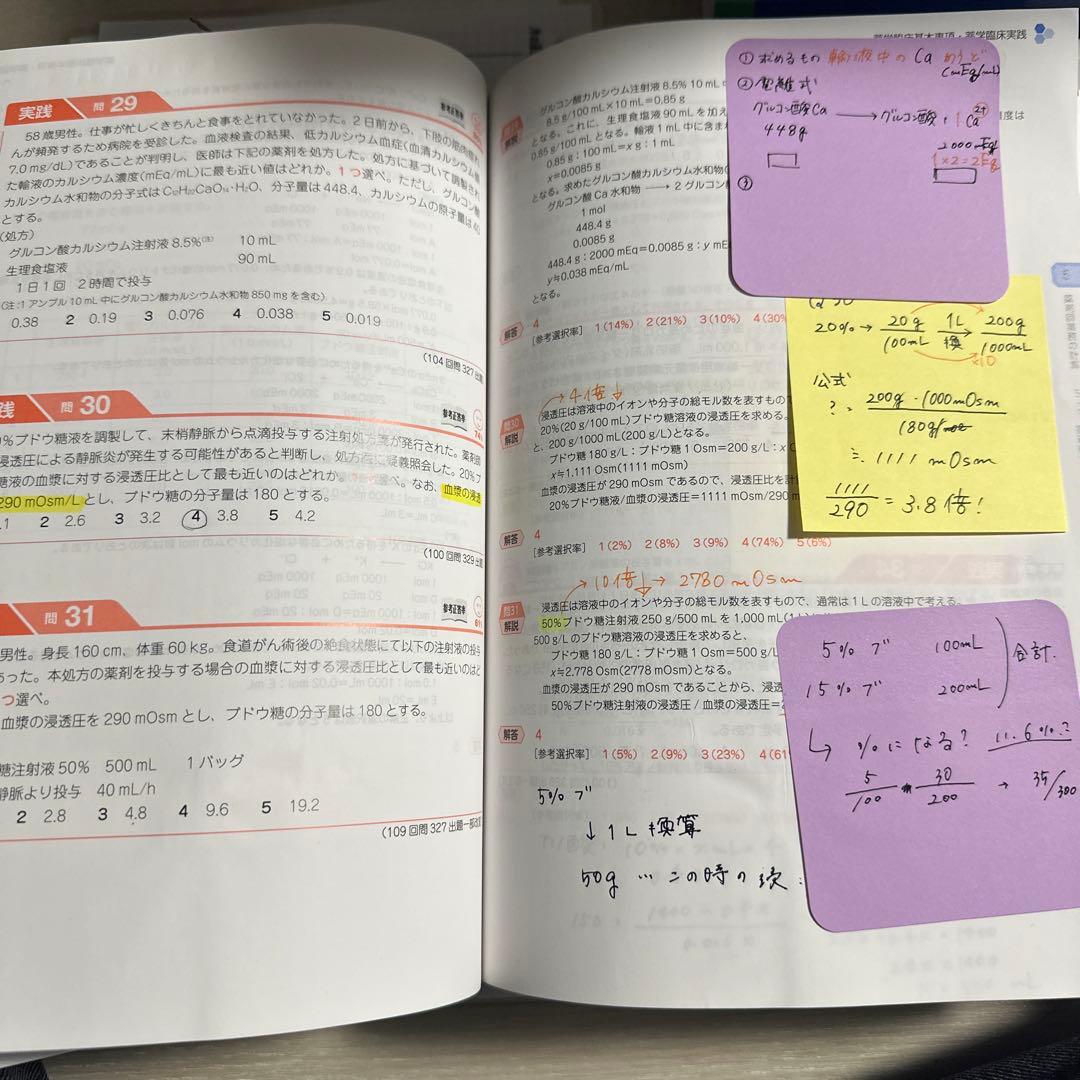 実践 問29
参考正答率
58歳男性。仕事が忙しくきちんと食事をとれていなかった。2日前から、下肢の筋肉
んが頻発するため病院を受診した。血液検査の結果、低カルシウム血症(血清カルシウム
7.0 mg/dL)であることが判明し、医師は下記の薬剤を処方した。処方に基づいて調製され
た輸液のカルシウム濃度(mEq/mL)に最も近い値はどれか。1つ選べ。ただし、グルコン酸
カルシウム水和物の分子式はC₁₂H₂₂CaO₁₄・H₂O、分子量は448.4、カルシウムの原子量は40
とする。
(処方)
グルコン酸カルシウム注射液8.5%(注) 10 mL
生理食塩液 90 mL
1日1回 2時間で投与
(注:1アンプル10 mL中にグルコン酸カルシウム水和物850 mgを含む)
0.38 2 0.19 3 0.076 4 0.038 5 0.019
(104回問327出題
践 問30
参考正答率
0%ブドウ糖液を調製して、末梢静脈から点滴投与する注射処方箋が発行された。薬剤師
浸透圧による静脈炎が発生する可能性があると判断し、処方医に疑義照会した。20%ブ
糖液の血漿に対する浸透圧比として最も近いのはどれか。1つ選べ。なお、血漿の浸透
290 mOsm/Lとし、ブドウ糖の分子量は180とする。
.1 2 2.6 3 3.2 4 3.8 5 4.2
(100回問329出題
問31
参考正答率
男性。身長160 cm、体重60 kg。食道がん術後の絶食状態にて以下の注射液の投与
あった。本処方の薬剤を投与する場合の血漿に対する浸透圧比として最も近いのはど
つ選べ。
血漿の浸透圧を290 mOsmとし、ブドウ糖の分子量は180とする。
糖注射液50% 500 mL 1バッグ
静脈より投与 40 mL/h
2 2.8 3 4.8 4 9.6 5 19.2
(109回問327出題一部改
薬学臨床基本事項・薬学臨床実践
グルコン酸カルシウム注射液8.5% 10 mL中
8.5 g/100 mL×10 mL=0.85 g
となる。これに、生理食塩液90 mLを加え
0.85 g/100 mLとなる。輸液1 mL中に含ま
0.85 g:100 mL=x g:1 mL
x=0.0085 g
となる。求めたグルコン酸カルシウム水和物の
グルコン酸Ca水和物 ⟶ 2グルコン
1 mol
448.4 g
0.0085 g
448.4 g:2000 mEq=0.0085 g:y mE
y≒0.038 mEq/mL
となる。
解答 4
[参考選択率] 1(14%) 2(21%) 3(10%) 4(30%
→4倍↓
問30
解説
浸透圧は溶液中のイオンや分子の総モル数を表すもので
20%(20 g/100 mL)ブドウ糖溶液の浸透圧を求める。
と、200 g/1000 mL(200 g/L)となる。
ブドウ糖180 g/L:ブドウ糖1 Osm=200 g/L:x
x≒1.111 Osm(1111 mOsm)
血漿の浸透圧が290 mOsmであるので、浸透圧比を計
20%ブドウ糖液/血漿の浸透圧=1111 mOsm/290 m
解答 4
[参考選択率] 1(2%) 2(8%) 3(9%) 4(74%) 5(6%)
→10倍↓→2780 mOsm
問31
解説
浸透圧は溶液中のイオンや分子の総モル数を表すもので、通常は1 Lの溶液中で考える。
50%ブドウ糖注射液250 g/500 mLを1,000 mL(1 L)
500 g/Lのブドウ糖溶液の浸透圧を求めると、
ブドウ糖180 g/L:ブドウ糖1 Osm=500 g/L
x≒2.778 Osm(2778 mOsm)となる。
血漿の浸透圧が290 mOsmであることから、浸透
50%ブドウ糖注射液の浸透圧/血漿の浸透圧=2
解答 4
[参考選択率] 1(5%) 2(9%) 3(23%) 4(61
5%ブ
↓1L換算
50g … この時の
① 求めるもの 輸液中の Ca めうど
(mEq/mL)
② 電離式
グルコン酸Ca ⟶ グルコン酸 + 1Ca²⁺
448g 2000mEq
1×2=2Eq
③
20%→ 20g/100mL 1L換→ 200g/1000mL
×10
公式
? = 200g・1000mOsm/180g
≒ 1111 mOsm
1111/290 = 3.8倍!
5%ブ 100mL
15%ブ 200mL
合計.
↳ %になる? 11.6%?
5/100 + 30/200 → 35/300